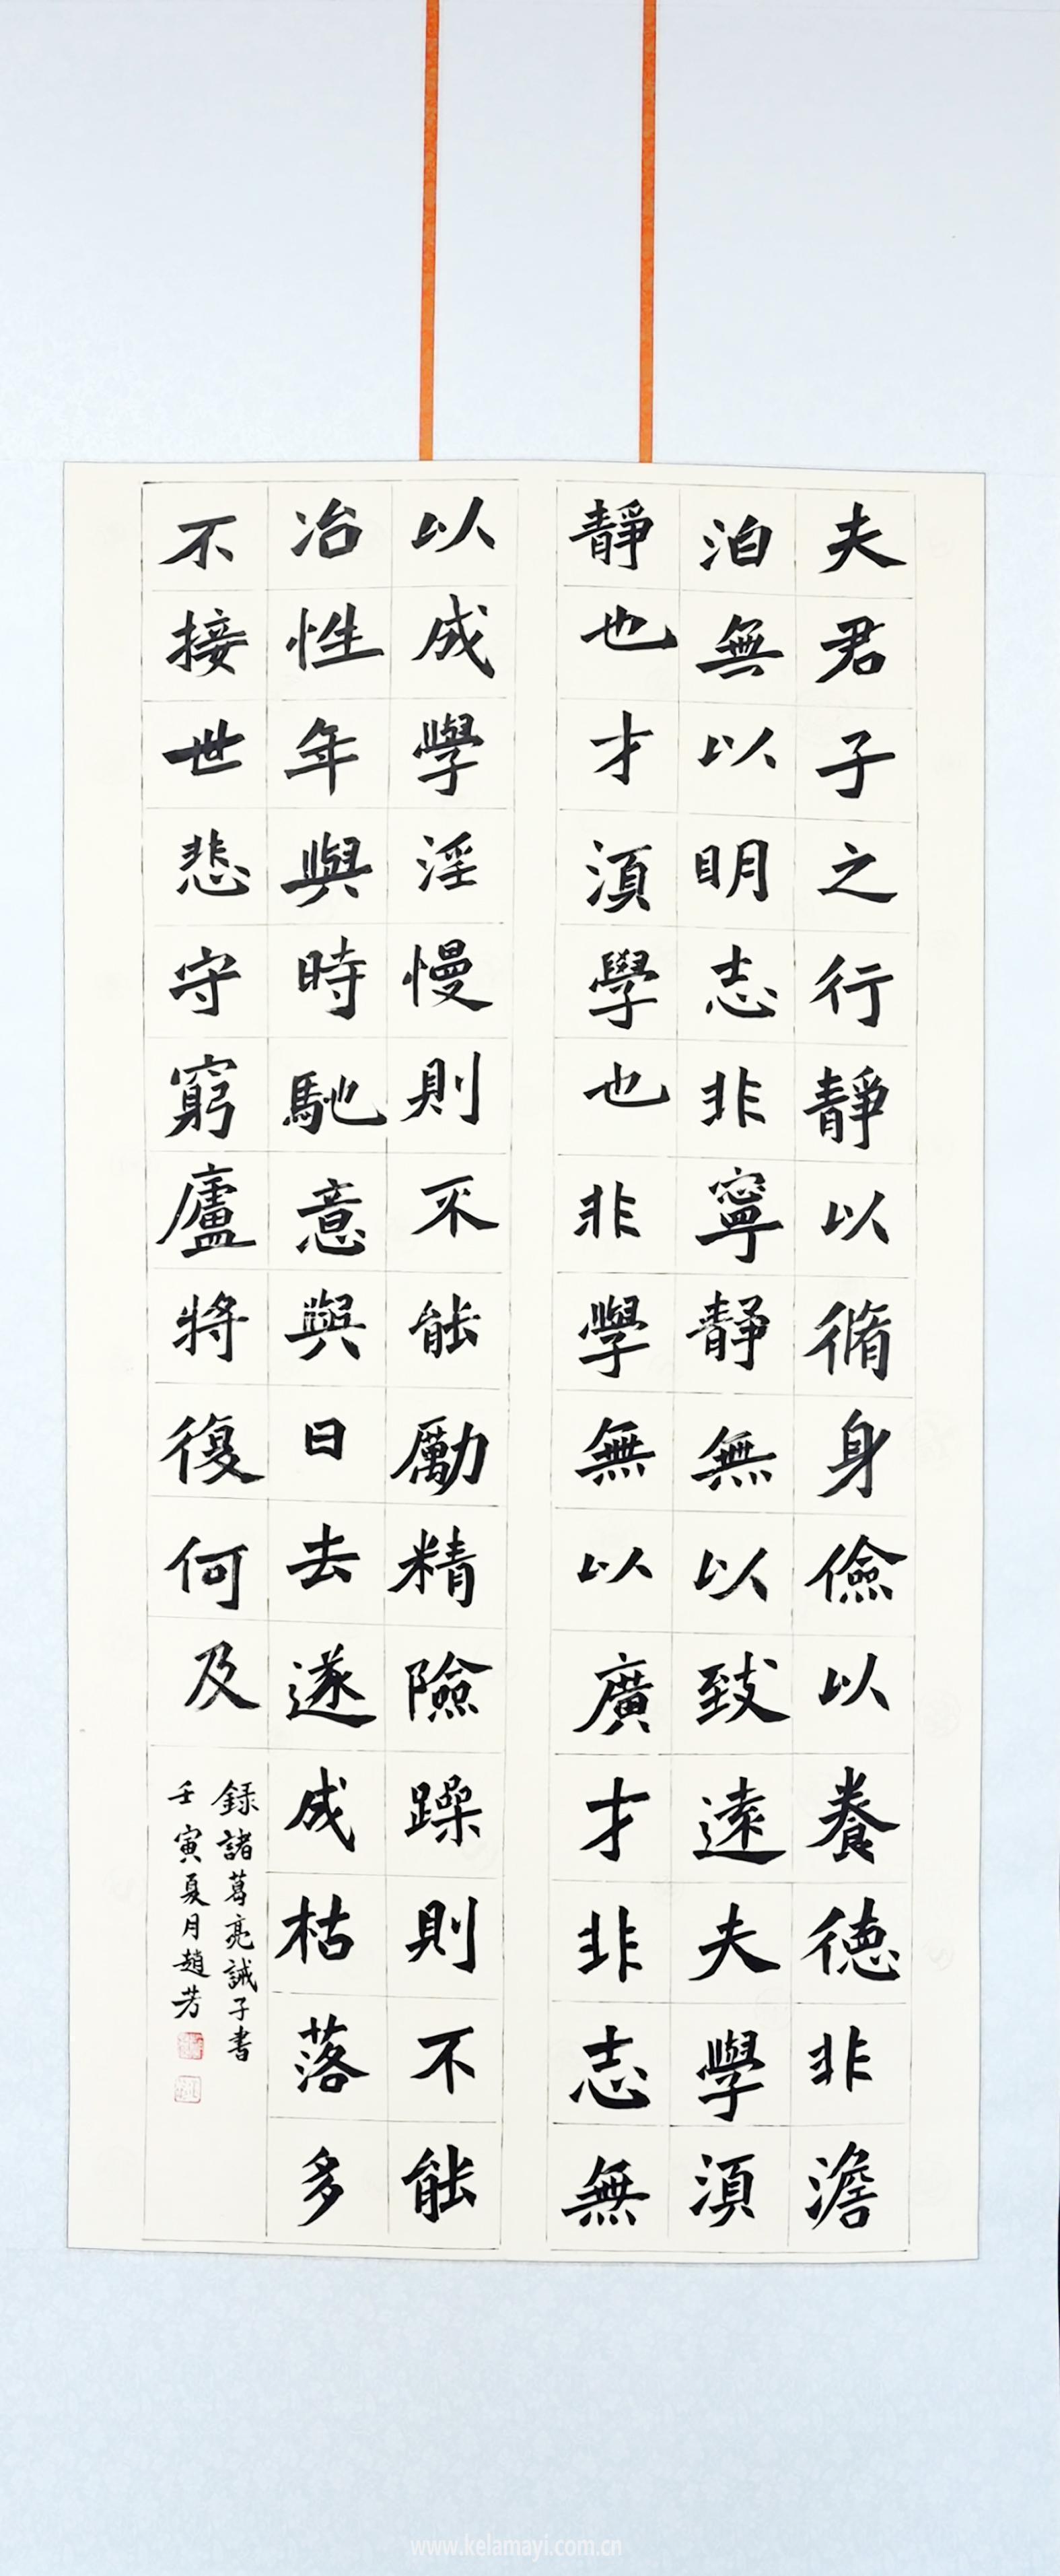 夫君子之行靜以脩身儉以養德非澹
泊無以明志非寧靜無以致遠夫學須
靜也才須學也非學無以廣才非志無
以成學淫慢則不能勵精險躁則不能
冶性年與時馳意與日去遂成枯落多
不接世悲守窮廬將復何及
録諸葛亮誡子書
壬寅夏月趙芳
www.kelamayi.com.cn